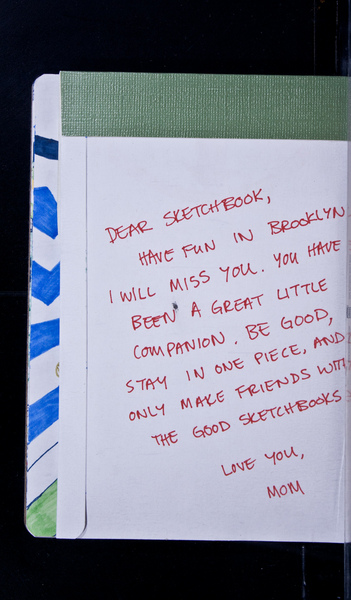 DEAR SKETCHBOOK,
HAVE FUN IN BROOKLYN.
I WILL MISS YOU. YOU HAVE
BEEN A GREAT LITTLE
COMPANION. BE GOOD,
STAY IN ONE PIECE, AND
ONLY MAKE FRIENDS WITH
THE GOOD SKETCHBOOKS
LOVE YOU,
MOM